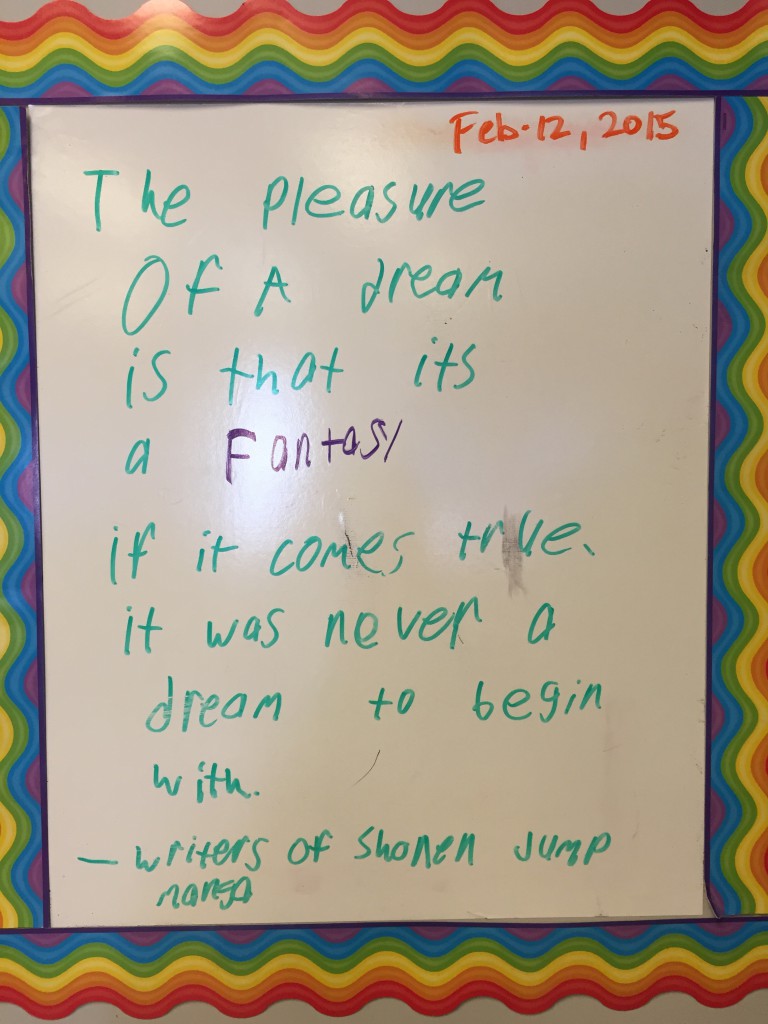 Feb. 12, 2015
The pleasure
Of A dream
is that its
a Fantasy
if it comes true.
it was never a
dream to begin
with.
— writers of Shonen Jump
manga